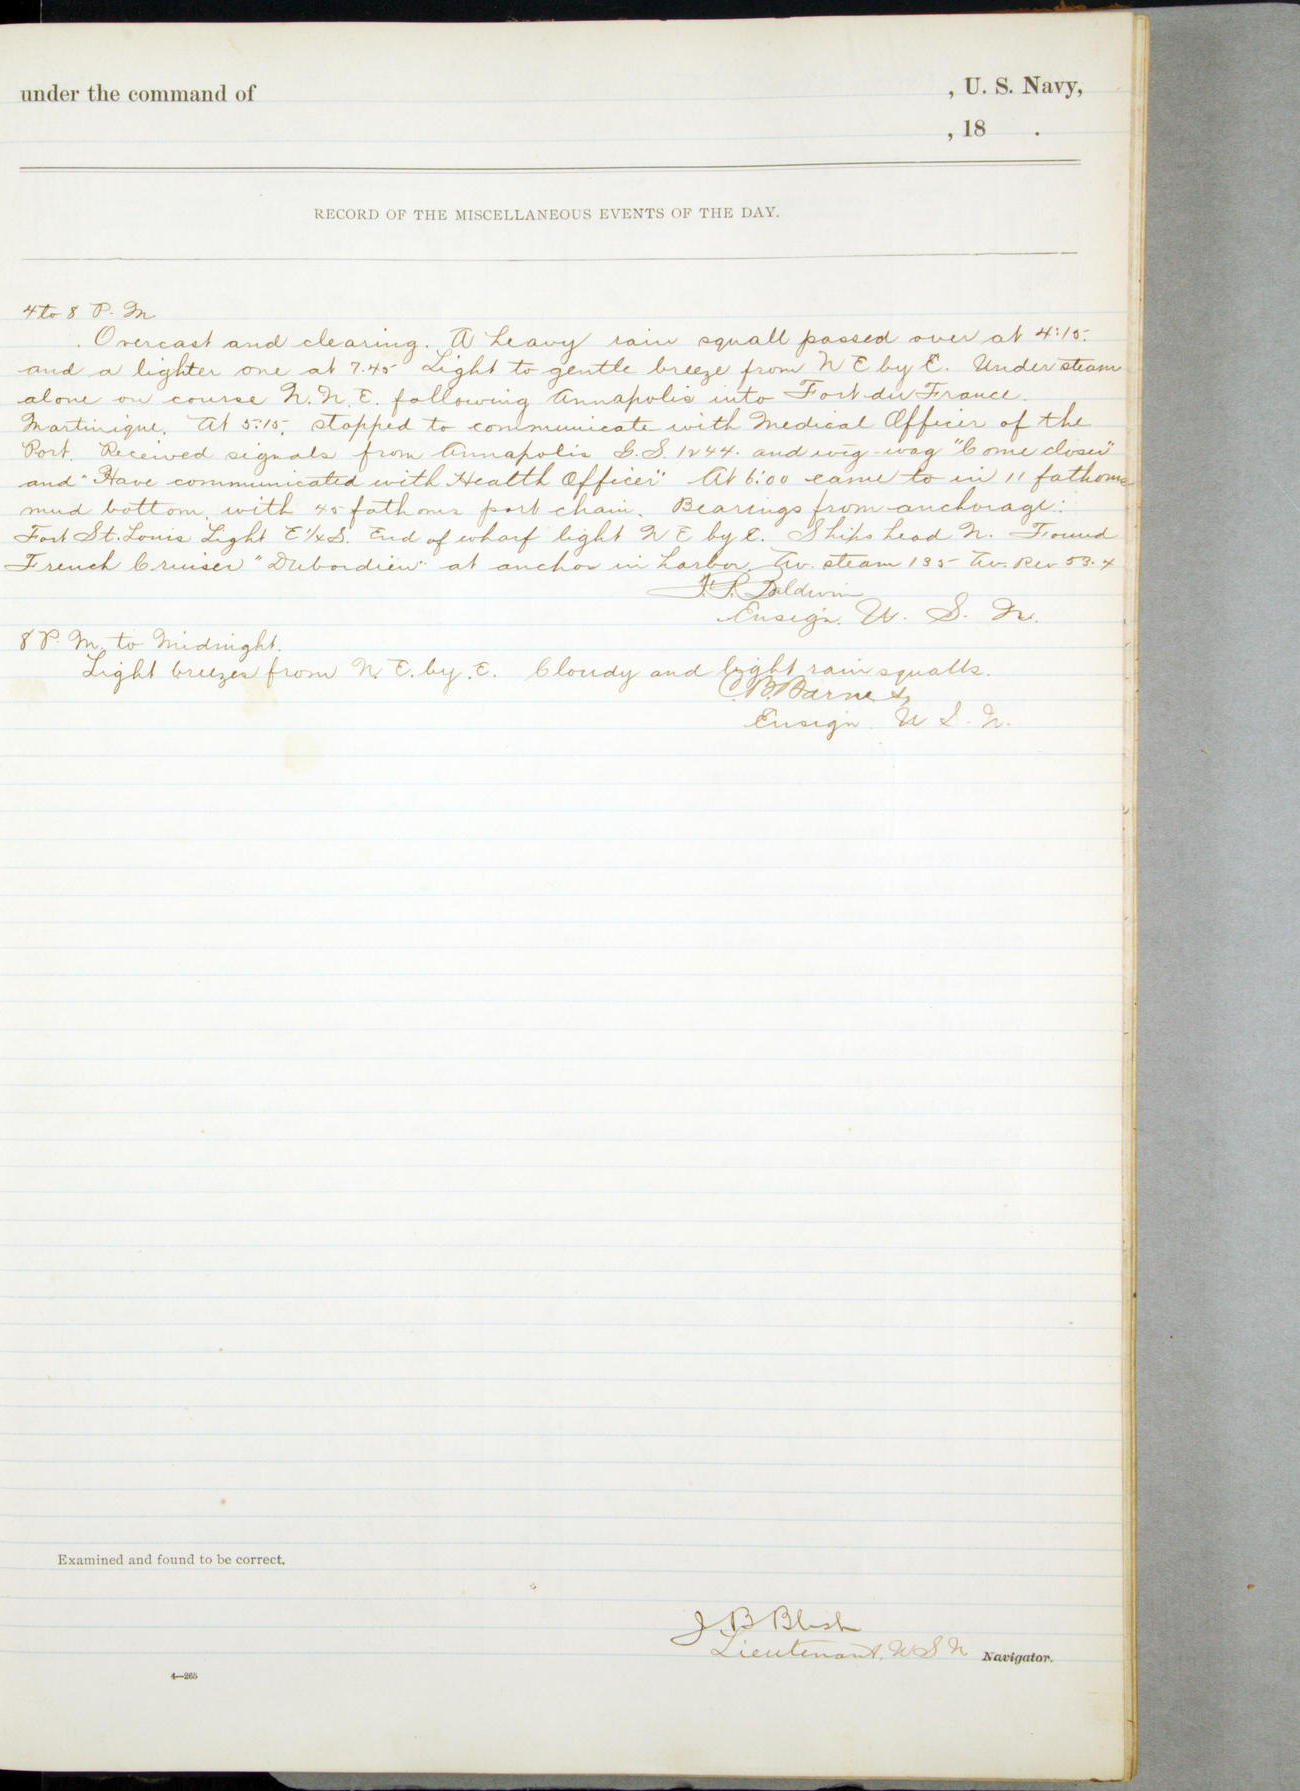 under the command of , U. S. Navy,
, 18 .
RECORD OF THE MISCELLANEOUS EVENTS OF THE DAY.
4 to 8 P. M
Overcast and clearing. A heavy rain squall passed over at 4:15.
and a lighter one at 7.45 Light to gentle breeze from N E by E. Under steam
alone on course N. N. E. following Annapolis into Fort du France.
Martinique. At 5:15, stopped to communicate with Medical Officer of the
Port. Received signals from Annapolis G. S. 1244. and wig-wag "Come closer"
and "Have communicated with Health Officer" At 6:00 came to in 11 fathoms
mud bottom, with 45 fathoms port chain. Bearings from anchorage:
Fort St. Louis Light E ¼ S. End of wharf light N E by E. Ships head N. Found
French Cruiser "Dubordieu" at anchor in harbor. Av. steam 135 Av. Rev 53.4
Baldwin
Ensign. U. S. N.
8 P. M. to Midnight.
Light breezes from N. E. by. E. Cloudy and light rain squalls.
C. B. Barnes
Ensign. U S. N.
Examined and found to be correct.
J. B Blish
Lieutenant, U S N Navigator.
4—265